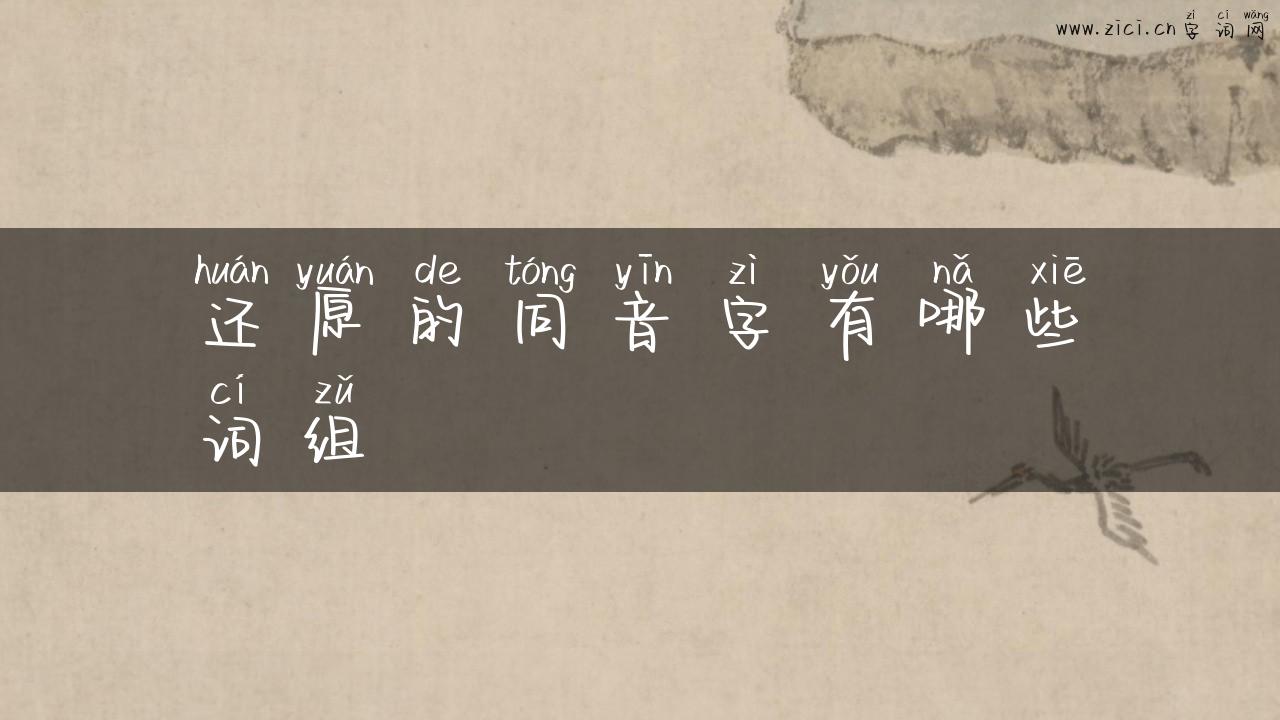 zì cí wǎng
www.zici.cn字词网
huán yuán de tóng yīn zì yǒu nǎ xiē
还原的同音字有哪些
cí zǔ
词组